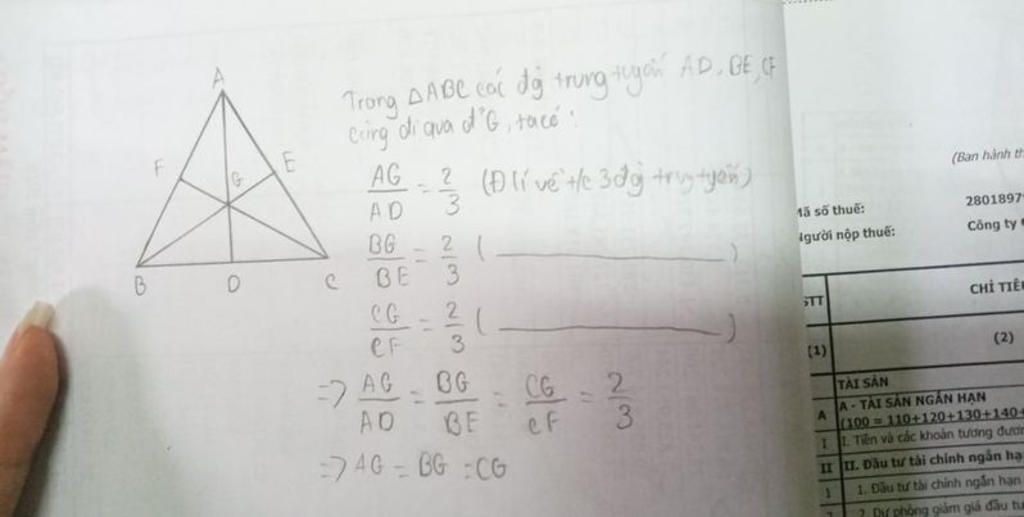 A
F
E
G
B
D
C
Trong △ABC các đg trung tuyến AD, BE, CF
cùng đi qua đ' G, ta có:
AG/AD = 2/3 (Đ lí về t/c 3 đg trung tuyến)
BG/BE = 2/3 ( )
CG/CF = 2/3 ( )
=> AG/AD = BG/BE = CG/CF = 2/3
=> AG = BG = CG
(Ban hành
Mã số thuế:
2801897
Người nộp thuế:
Công ty
STT
CHỈ TIÊU
(1)
(2)
TÀI SẢN
A
A - TÀI SẢN NGẮN HẠN
(100 = 110+120+130+140+
I
I. Tiền và các khoản tương đươn
II
II. Đầu tư tài chính ngắn hạ
1
1. Đầu tư tài chính ngắn hạn
2. Dự phòng giảm giá đầu tư